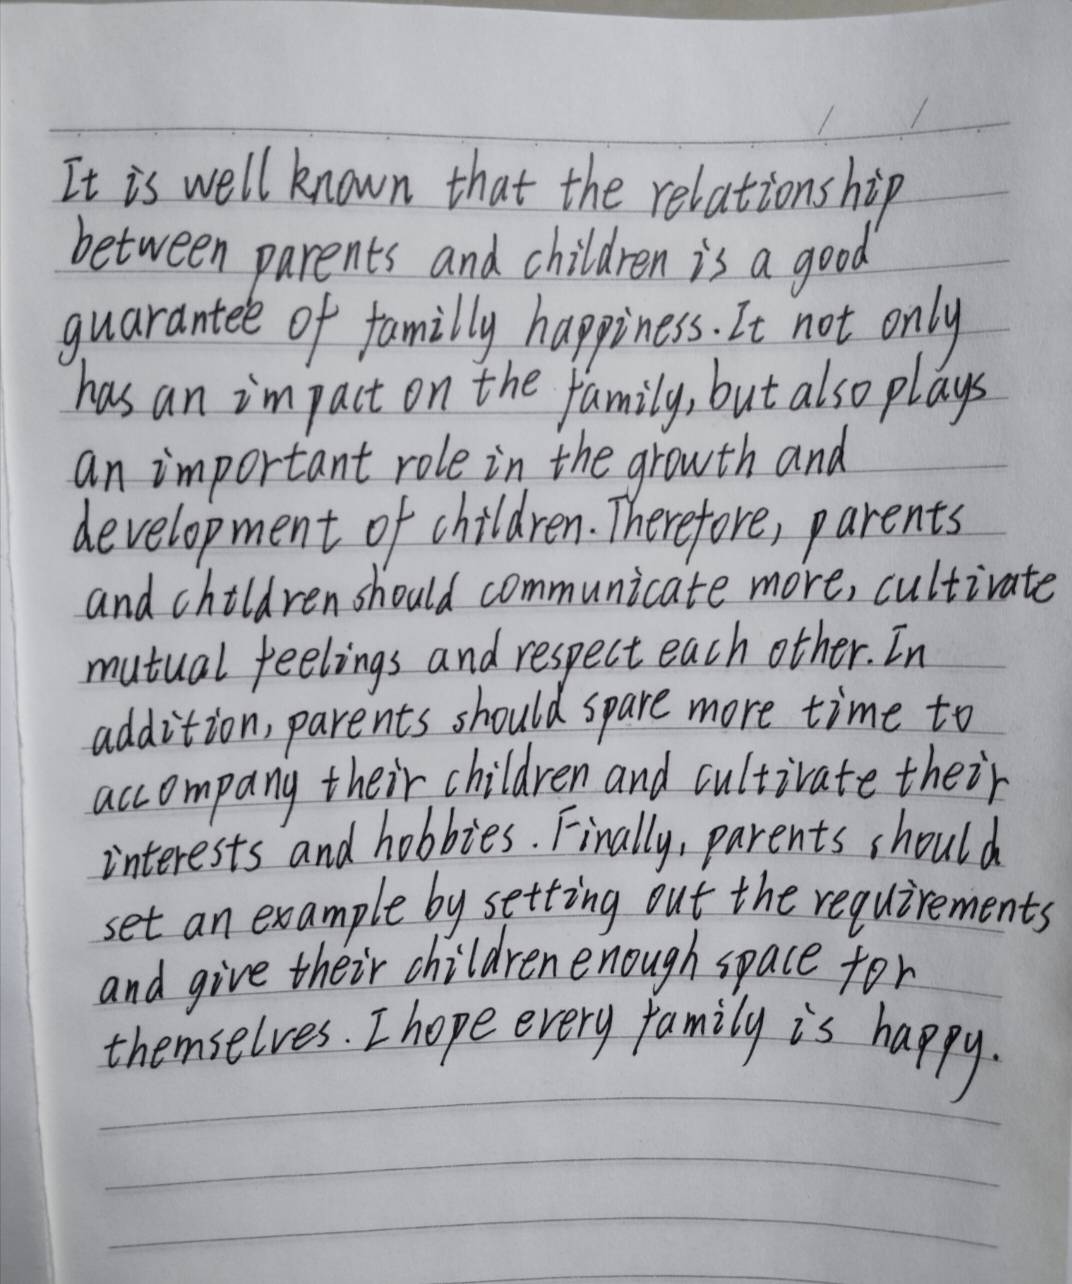 It is well known that the relationship
between parents and children is a good
guarantee of familly happiness. It not only
has an impact on the family, but also plays
an important role in the growth and
development of children. Therefore, parents
and children should communicate more, cultivate
mutual feelings and respect each other. In
addition, parents should spare more time to
accompany their children and cultivate their
interests and hobbies. Finally, parents should
set an example by setting out the requirements
and give their children enough space for
themselves. I hope every family is happy.